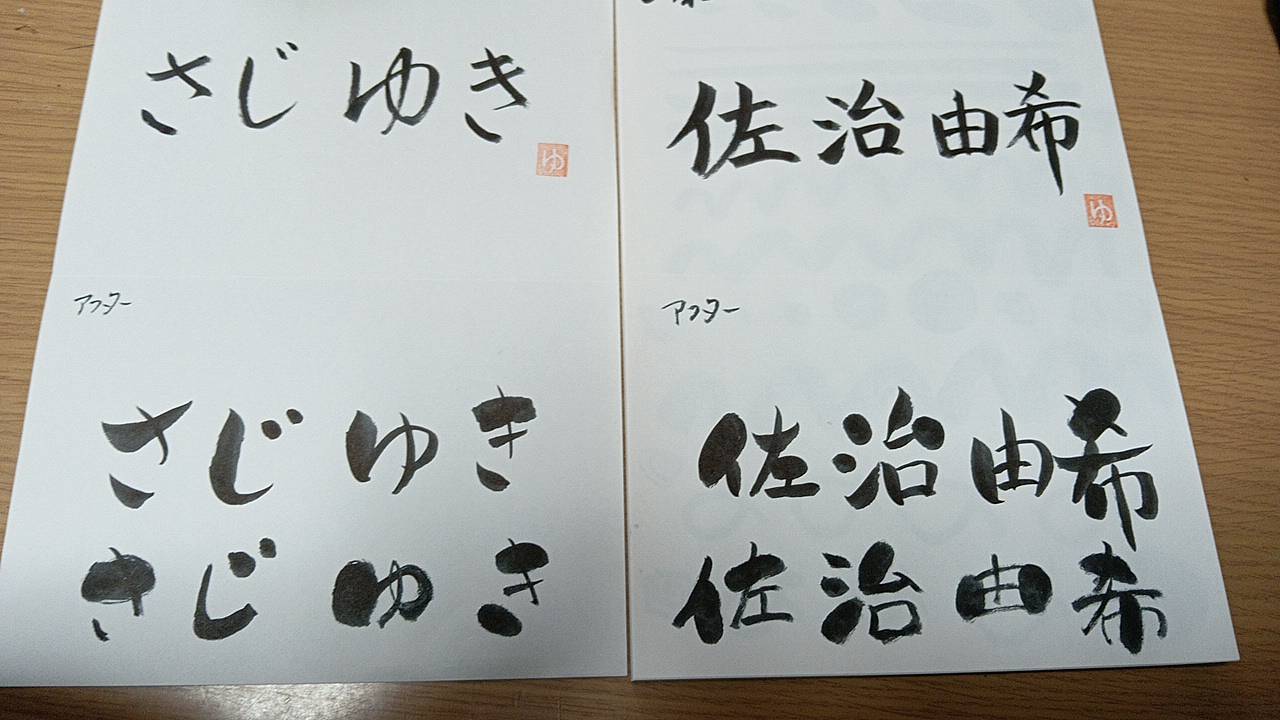 さじ ゆき
ゆ
アフター
さじ ゆき
さじ ゆき
佐治由希
ゆ
アフター
佐治由希
佐治由希